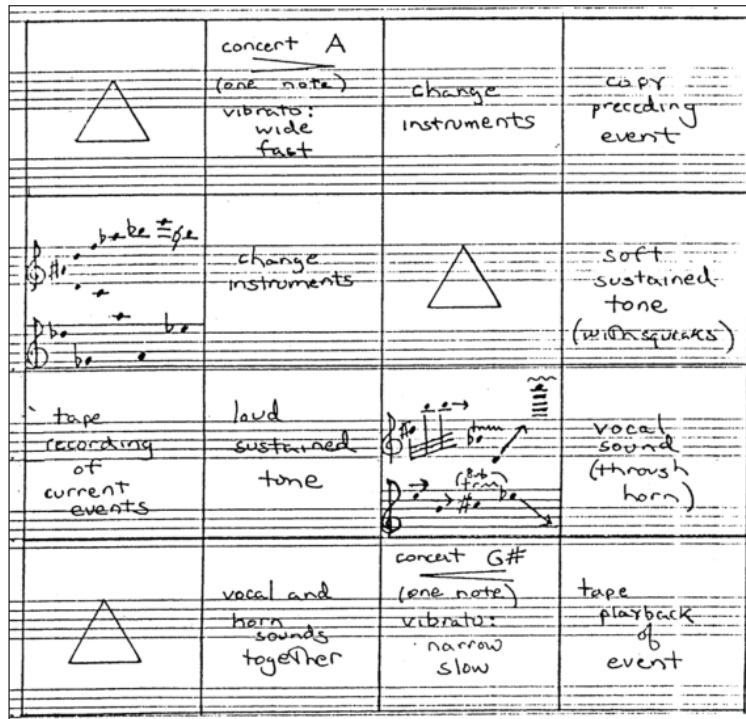 concert A
(one note)
vibrato:
wide
fast
change
instruments
copy
preceding
event
change
instruments
soft
sustained
tone
(with squeaks)
tape
recording
of
current
events
loud
sustained
tone
trm
(8vb)
trm
vocal
sound
(through
horn)
vocal and
horn
sounds
together
concert G#
(one note)
vibrato:
narrow
slow
tape
playback
of
event